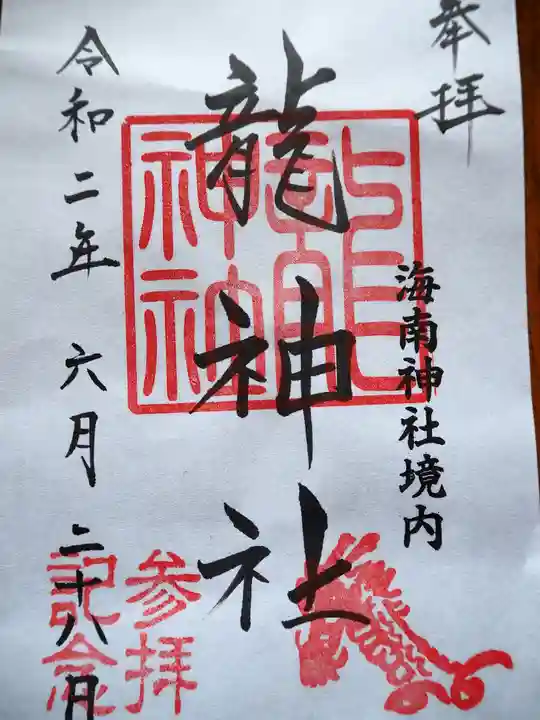 奉拝
海南神社境内
龍神社
龍神社
参拝
記念
令和二年 六月 二十八日